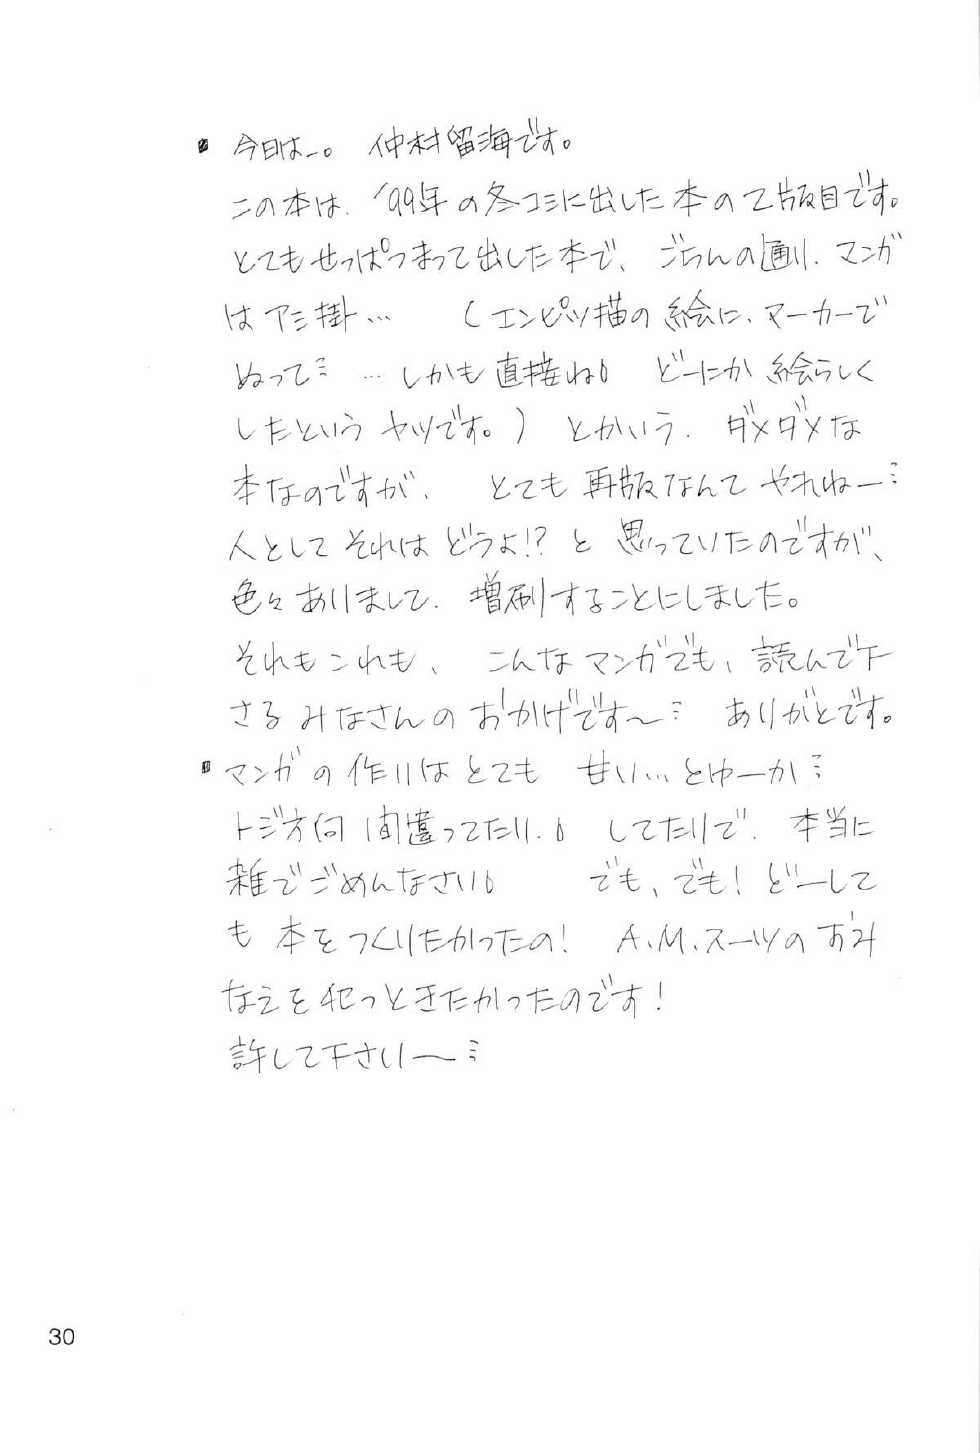 今日は~。 仲村留海です。
この本は、'99年の冬コミに出した本の2版目です。
とてもせっぱつまって出した本で、ごらんの通り、マンガ
はアミ掛… (エンピツ描の絵に、マーカーで
ぬって… …しかも直接ね どーにか絵らしく
したというヤツです。) とかいう、ダメダメな
本なのですが、とても再版なんてやれねー…
人としてそれはどうよ!?と思っていたのですが、
色々ありまして、増刷することにしました。
それもこれも、こんなマンガでも、読んで下
さるみなさんのおかげです〜… ありがとです。
マンガの作りはとても 甘い…とゆーか…
トジ方向間違ってたり、してたりで、本当に
雑でごめんなさい でも、でも!どーして
も本をつくりたかったの! A.M.スーツのおみ
なえを犯っときたかったのです!
許して下さい〜…
30